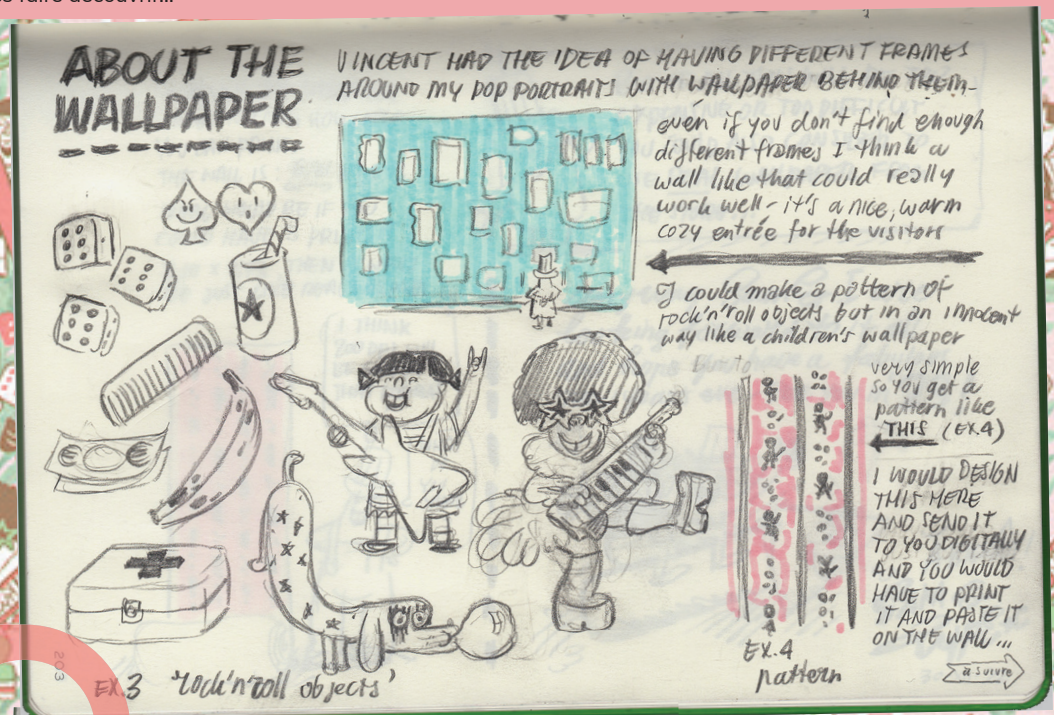 ABOUT THE
WALLPAPER
VINCENT HAD THE IDEA OF HAVING DIFFERENT FRAMES
AROUND MY POP PORTRAITS WITH WALLPAPER BEHIND THEM-
even if you don't find enough
different frames I think a
wall like that could really
work well - it's a nice, warm
cozy entrée for the visitors
I could make a pattern of
rock'n'roll objects but in an innocent
way like a children's wallpaper
very simple
so you get a
pattern like
THIS (EX.4)
I WOULD DESIGN
THIS HERE
AND SEND IT
TO YOU DIGITALLY
AND YOU WOULD
HAVE TO PRINT
IT AND PASTE IT
ON THE WALL...
EX.4
pattern
à suivre
EX.3 'rock'n'roll objects'
203